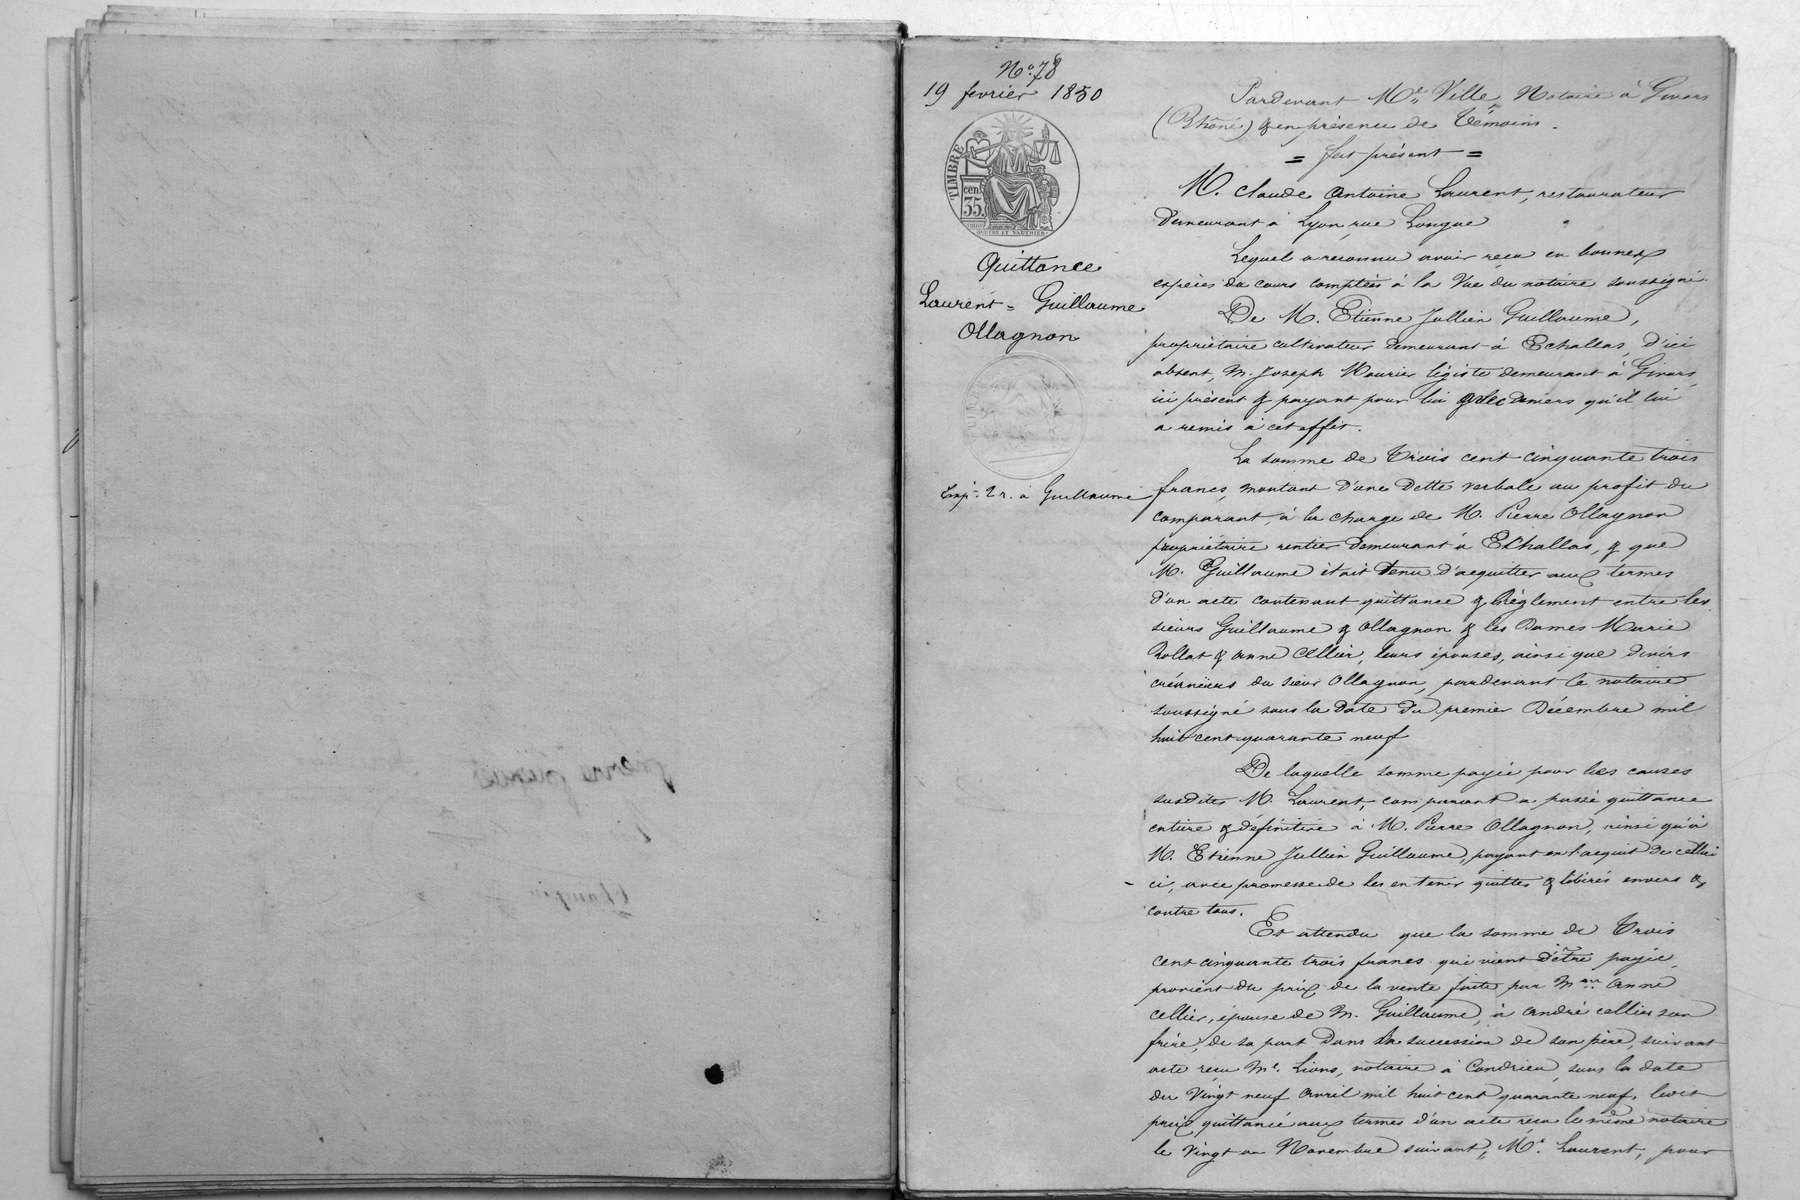 N° 78
19 fevrier 1850
TIMBRE
cen
35.
Quittance
Laurent = Guillaume
Ollagnon
2 r. à Guillaume
Pardevant Me Ville, Notaire à Givors
(Rhône) & en présence de Témoins.
= fut présent =
M. Claude Antoine Laurent, restaurateur
demeurant à Lyon, rue Longue
Lequel a reconnu avoir reçu en bonnes
espèces du cours comptées à la vue du notaire soussigné
De M. Etienne Jullien Guillaume,
propriétaire cultivateur demeurant à Echallas, d'ici
absent, M. Joseph Mourier légiste demeurant à Givors,
ici présent & payant pour lui & des deniers qu'il lui
a remis à cet effet.
La somme de Trois cent cinquante trois
francs, montant d'une dette verbale au profit du
comparant, à la charge de M. Pierre Ollagnon
propriétaire rentier demeurant à Echallas, & que
M. Guillaume était tenu d'acquitter aux termes
d'un acte contenant quittance & Règlement entre les
sieurs Guillaume & Ollagnon & les Dames Marie
Rollat & anne Cellier, leurs épouses, ainsi que divers
créanciers du sieur Ollagnon, pardevant le notaire
soussigné sous la date du premier Décembre mil
huit cent quarante neuf
De laquelle somme payée pour les causes
susdites M. Laurent, comparant a passé quittance
entière & définitive à M. Pierre Ollagnon, ainsi qu'à
M. Etienne Jullien Guillaume, payant en l'acquit de cellui
ci, avec promesse de les en tenir quittes & libérés envers &
contre tous.
Et attendu que la somme de Trois
cent cinquante trois francs qui vient d'être payée,
provient du prix de la vente faite par Mme anne
Cellier, épouse de M. Guillaume, à andré cellier son
frère, de sa part dans la succession de son père, suivant
acte reçu Me. Lions, notaire à Condrieu, sous la date
du vingt neuf avril mil huit cent quarante neuf, ledit
prix quittancé aux termes d'un acte reçu le même notaire
le vingt un Novembre suivant, Mr. Laurent, pour